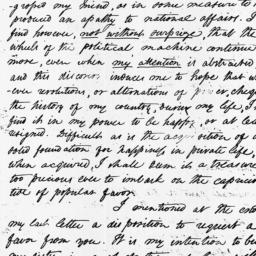 groped my friend, as in some measure to h
produced an apathy to national affairs. I
find however, not without surprize, that the
wheels of the political machine continue
more, even when my attention is abstracted.
and this discov induces me to hope that w
-ever revolutions, or alternations of p er, cheq
the history of my country, during my life, I
find it in my power to be happy, or at lea
resigned. Difficult as is the acquisition of a
solid foundation for happiness in private life,
when acquired, I shall deem it a treasure
too precious ever to imbark on the capricio
tide of popular favor.
I mentioned at the
my last letter a disposition to request a
favor from you. It is my intention to be